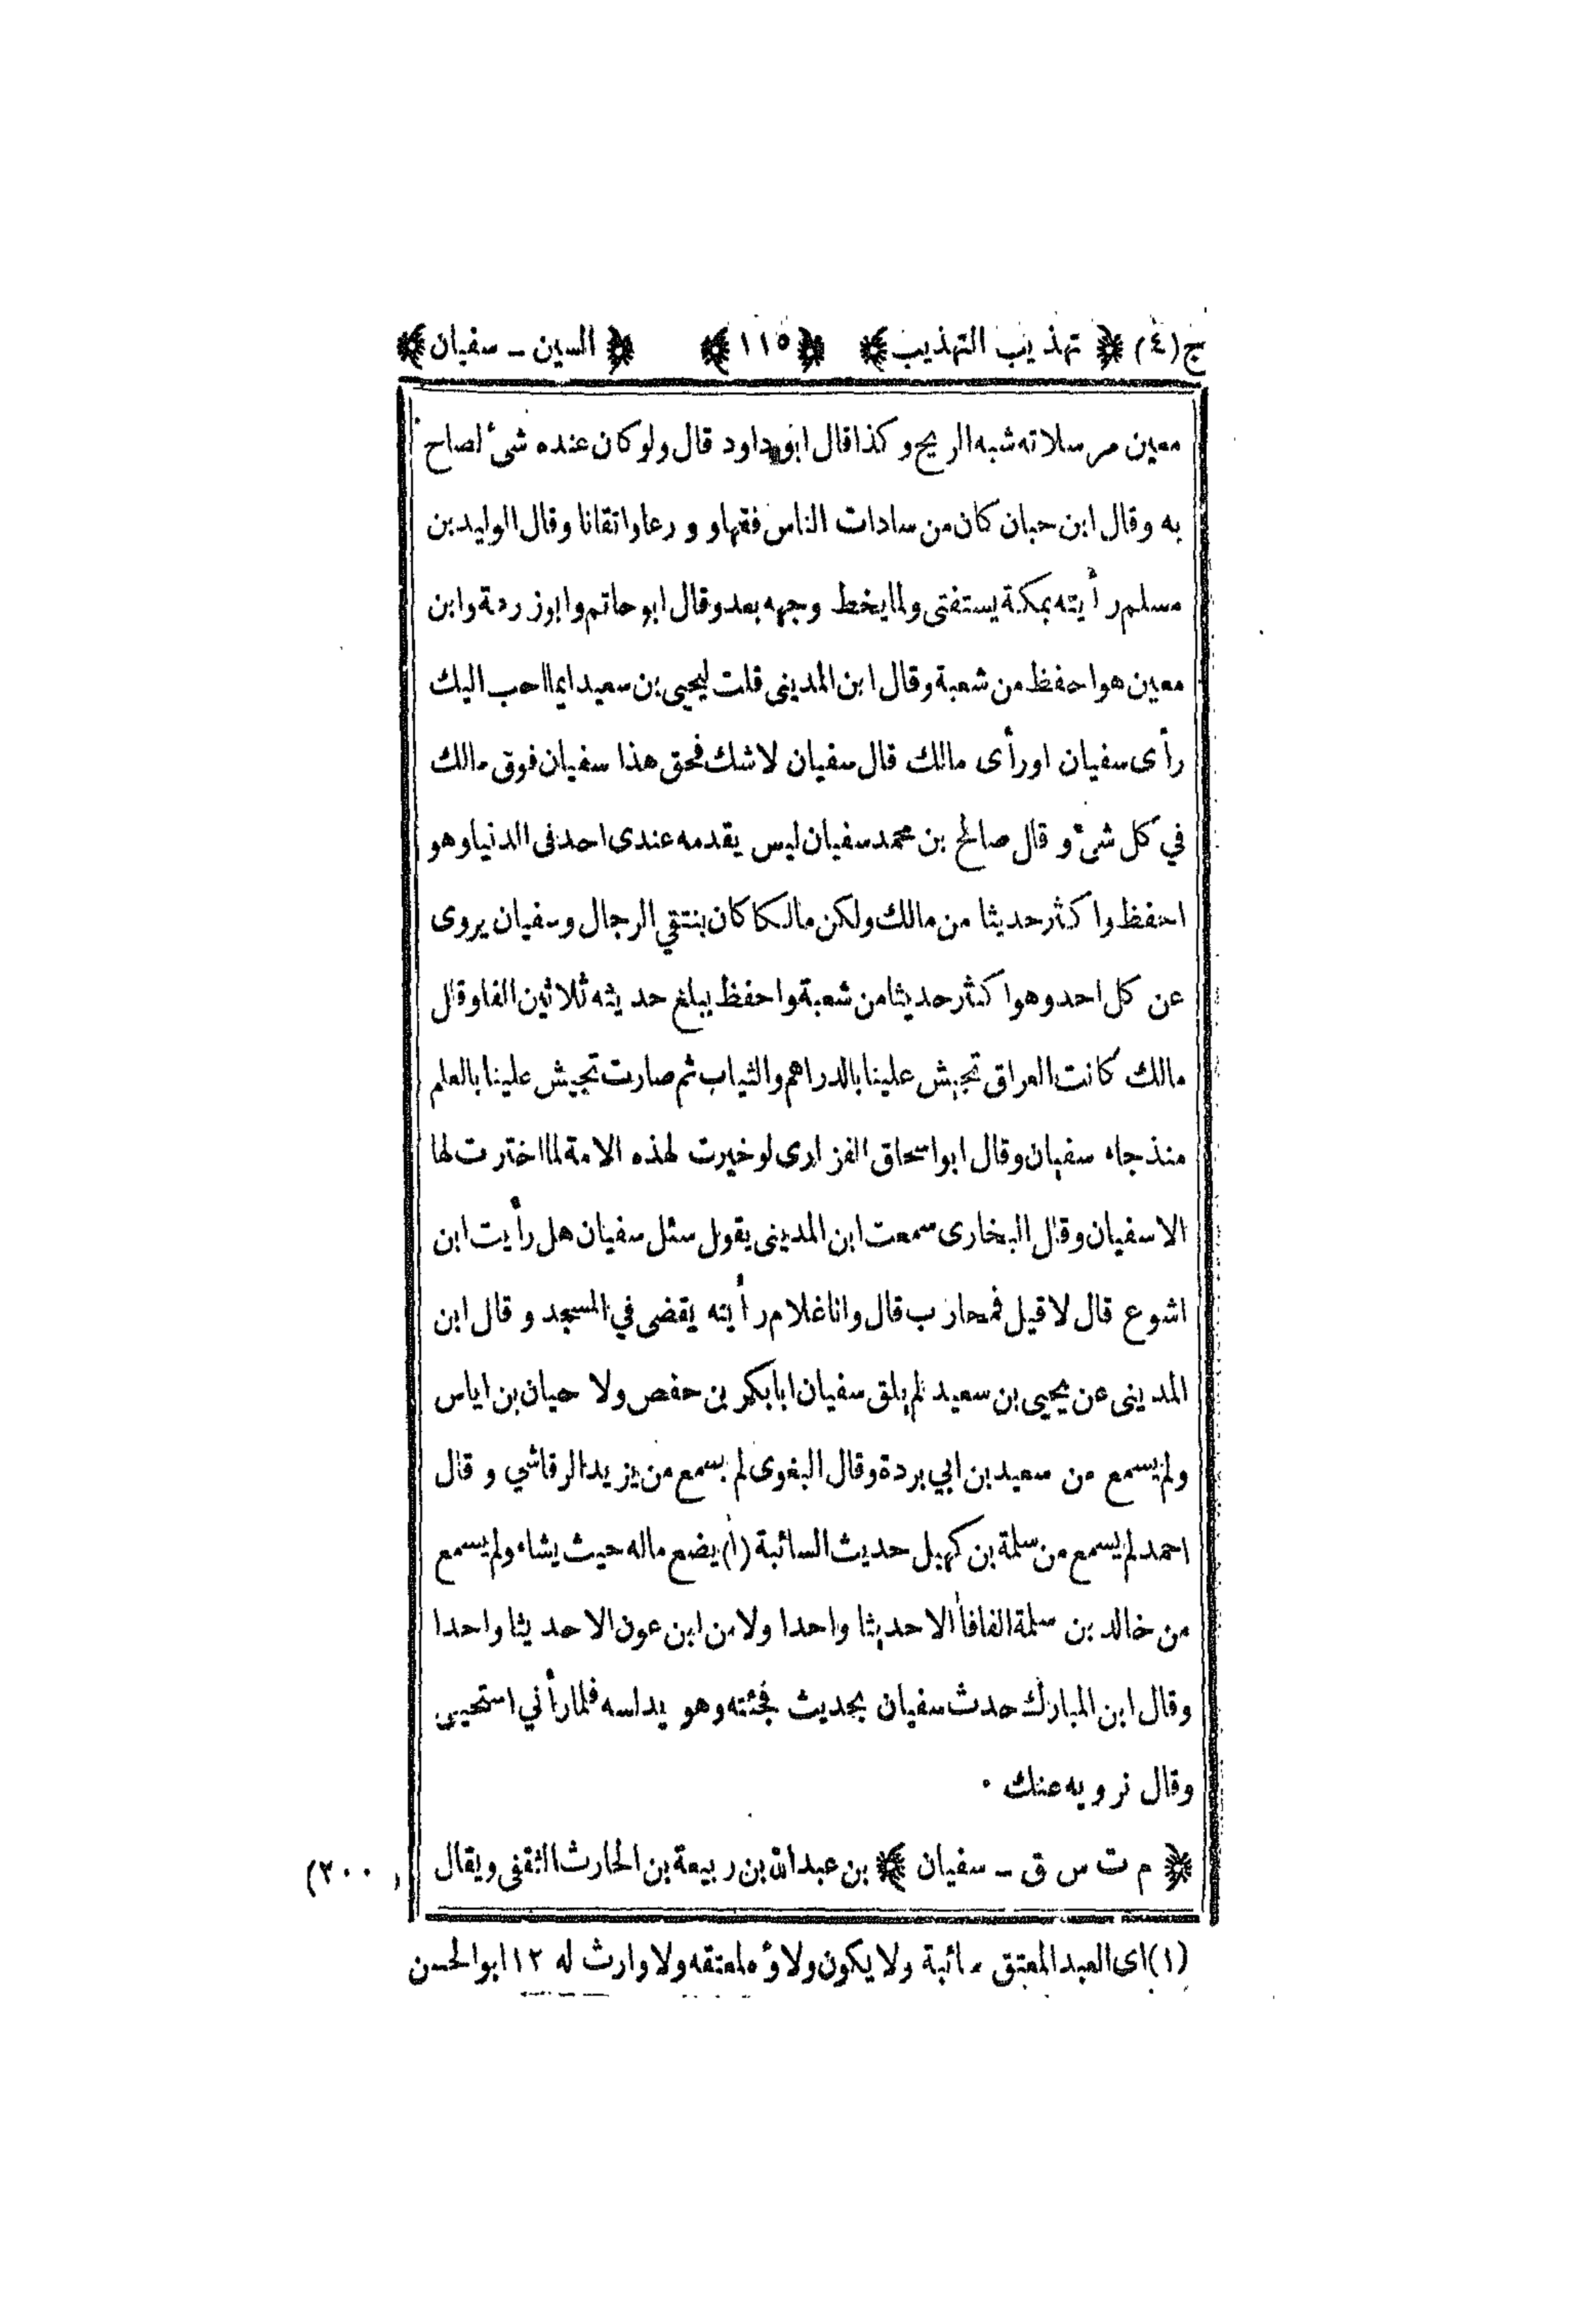 ج(٤) ﴿ تهذيب التهذيب ﴾ ﴿ ١١٥ ﴾ ﴿ السين ـ سفيان ﴾
معين مرسلاته شبه الريح وكذا قال ابو داود قال ولو كان عنده شىٔ لصاح
به وقال ابن حبان كان من سادات الناس فقها و ورعا واتقانا وقال الوليد بن
مسلم رأيته بمكة يستفتى ولما يخط وجهه بعد وقال ابو حاتم وابو زرعة وابن
معين هو احفظ من شعبة وقال ابن المدينى قلت ليحيى بن سعيد ايما احب اليك
رأى سفيان او رأى مالك قال سفيان لا شك فى هذا سفيان فوق مالك
في كل شىٔ و قال صالح بن محمد سفيان ليس يقدمه عندى احد فى الدنيا وهو
احفظ واكثر حديثا من مالك ولكن مالكا كان ينتقي الرجال وسفيان يروى
عن كل احد وهو اكثر حديثا من شعبة واحفظ يبلغ حديثه ثلاثين الفا وقال
مالك كانت العراق تجيش علينا بالدراهم والثياب ثم صارت تجيش علينا بالعلم
منذ جاء سفيان وقال ابو اسحاق الفزارى لو خيرت لهذه الامة لما اخترت لها
الا سفيان وقال البخارى سمعت ابن المدينى يقول سئل سفيان هل رأيت ابن
اشوع قال لا قيل فمحارب قال وانا غلام رأيته يقضى في المسجد و قال ابن
المدينى عن يحيى بن سعيد لم يلق سفيان ابا بكر بن حفص ولا حيان بن اياس
ولم يسمع من سعيد بن ابي بردة وقال البغوى لم يسمع من يزيد الرقاشي و قال
احمد لم يسمع من سلمة بن كهيل حديث السائبة (١) يضع ماله حيث يشاء ولم يسمع
من خالد بن سلمة الفافأ الا حديثا واحدا ولا من ابن عون الا حديثا واحدا
وقال ابن المبارك حدث سفيان بحديث فجئته وهو يدلسه فلما رأني استحيى
وقال نرويه عنك ٠
﴿ م ت س ق ـ سفيان ﴾ بن عبد الله بن ربيعة بن الحارث الثقفى ويقال
(٢٠٠)
(١) اى العبد المعتق سائبة ولا يكون ولاؤه لمعتقه ولا وارث له ١٢ ابو الحسن